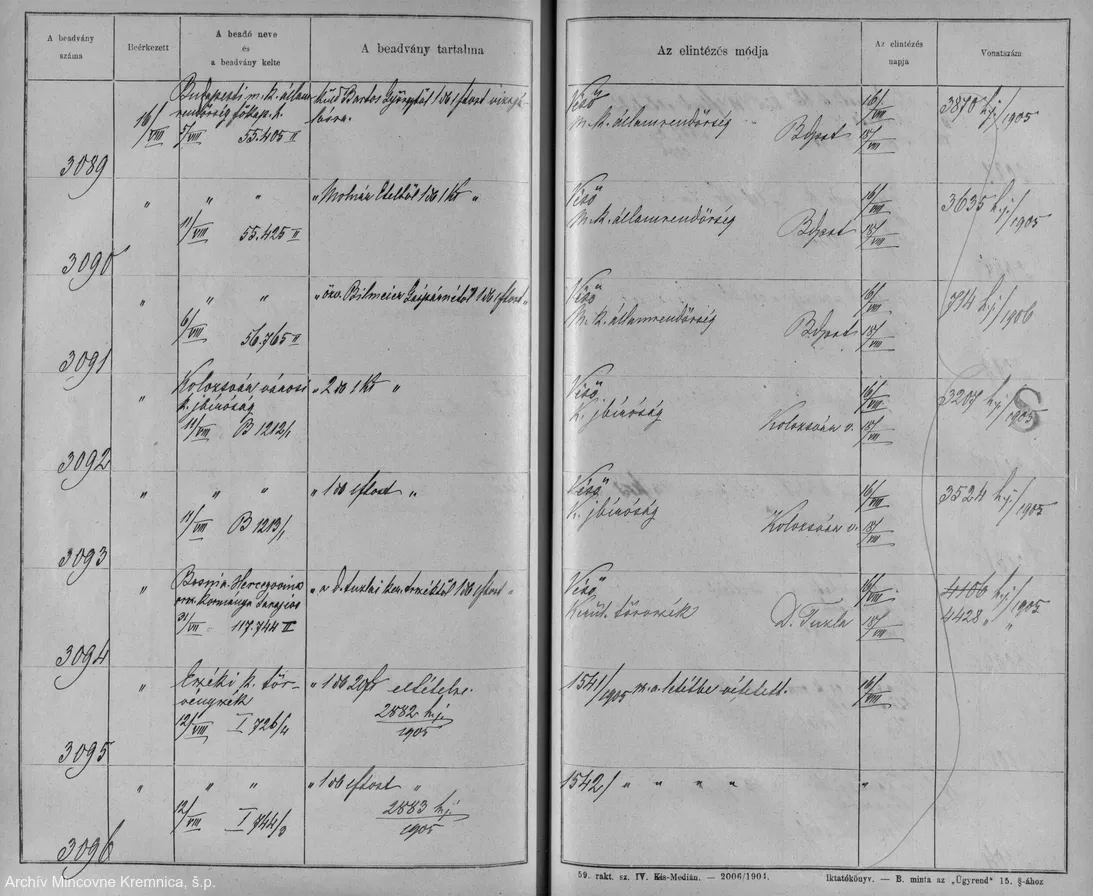 A beadvány
száma
Beérkezett
A beadó neve
és
a beadvány kelte
A beadvány tartalma
Az elintézés módja
Az elintézés
napja
Vonatszám
3089
16/VIII
Budapesti m. k. állam-
rendőrség főkap. h.
5/VIII 55.405 II
küld Bartos Györgytől 1 db 1 frtost vizsgá-
latra.
Vissza
M. k. államrendőrség Bdpest
16/VIII
18/VIII
3870 h.j/1905
3090
" " "
11/VIII 55.425 II
" Molnár Eteltől 1 db 1 K "
M. k. államrendőrség Bdpest
16/VIII
18/VIII
3635 h.j/1905
3091
" " "
6/VIII 56.765 II
" özv. Bilmeier Gáspárnétól 1 db 1 frtost "
M. k. államrendőrség Bdpest
16/VIII
18/VIII
714 h.j/1906
3092
"
Kolozsvár városi
k. jbíróság
11/VIII B 1212/1
" 2 db 1 K "
K. jbíróság Kolozsvár v.
16/VIII
18/VIII
3207 h.j/1905
S
3093
" " "
11/VIII B 1213/1
" 1 db 1 frtost "
K. jbíróság Kolozsvár v.
16/VIII
18/VIII
3524 h.j/1905
3094
"
Bosnia-Hercegovina
orsz. kormánya Sarajevo
31/VII 117.744 II
" a D. tuzlai ker. trszéktől 1 db 1 frtost "
Kerül. törvszék D. Tuzla
16/VIII
18/VIII
4156 h.j/1905
4428 " "
3095
"
k. tör-
vényszék
12/VIII I 726/4
" 1 db 20 f eltételre.
2882 h.j./1905
1541/1905 m. a. letétbe vétetett.
16/VIII
3096
" " "
12/VIII I 744/3
" 1 db 1 frtost "
2883 h.j./1905
1542/ " " " "
"
59. rakt. sz. IV. Kis-Medián. — 2006/1904.
Iktatókönyv. — B. minta az „Ügyrend" 15. §-ához
Archív Mincovne Kremnica, š.p.